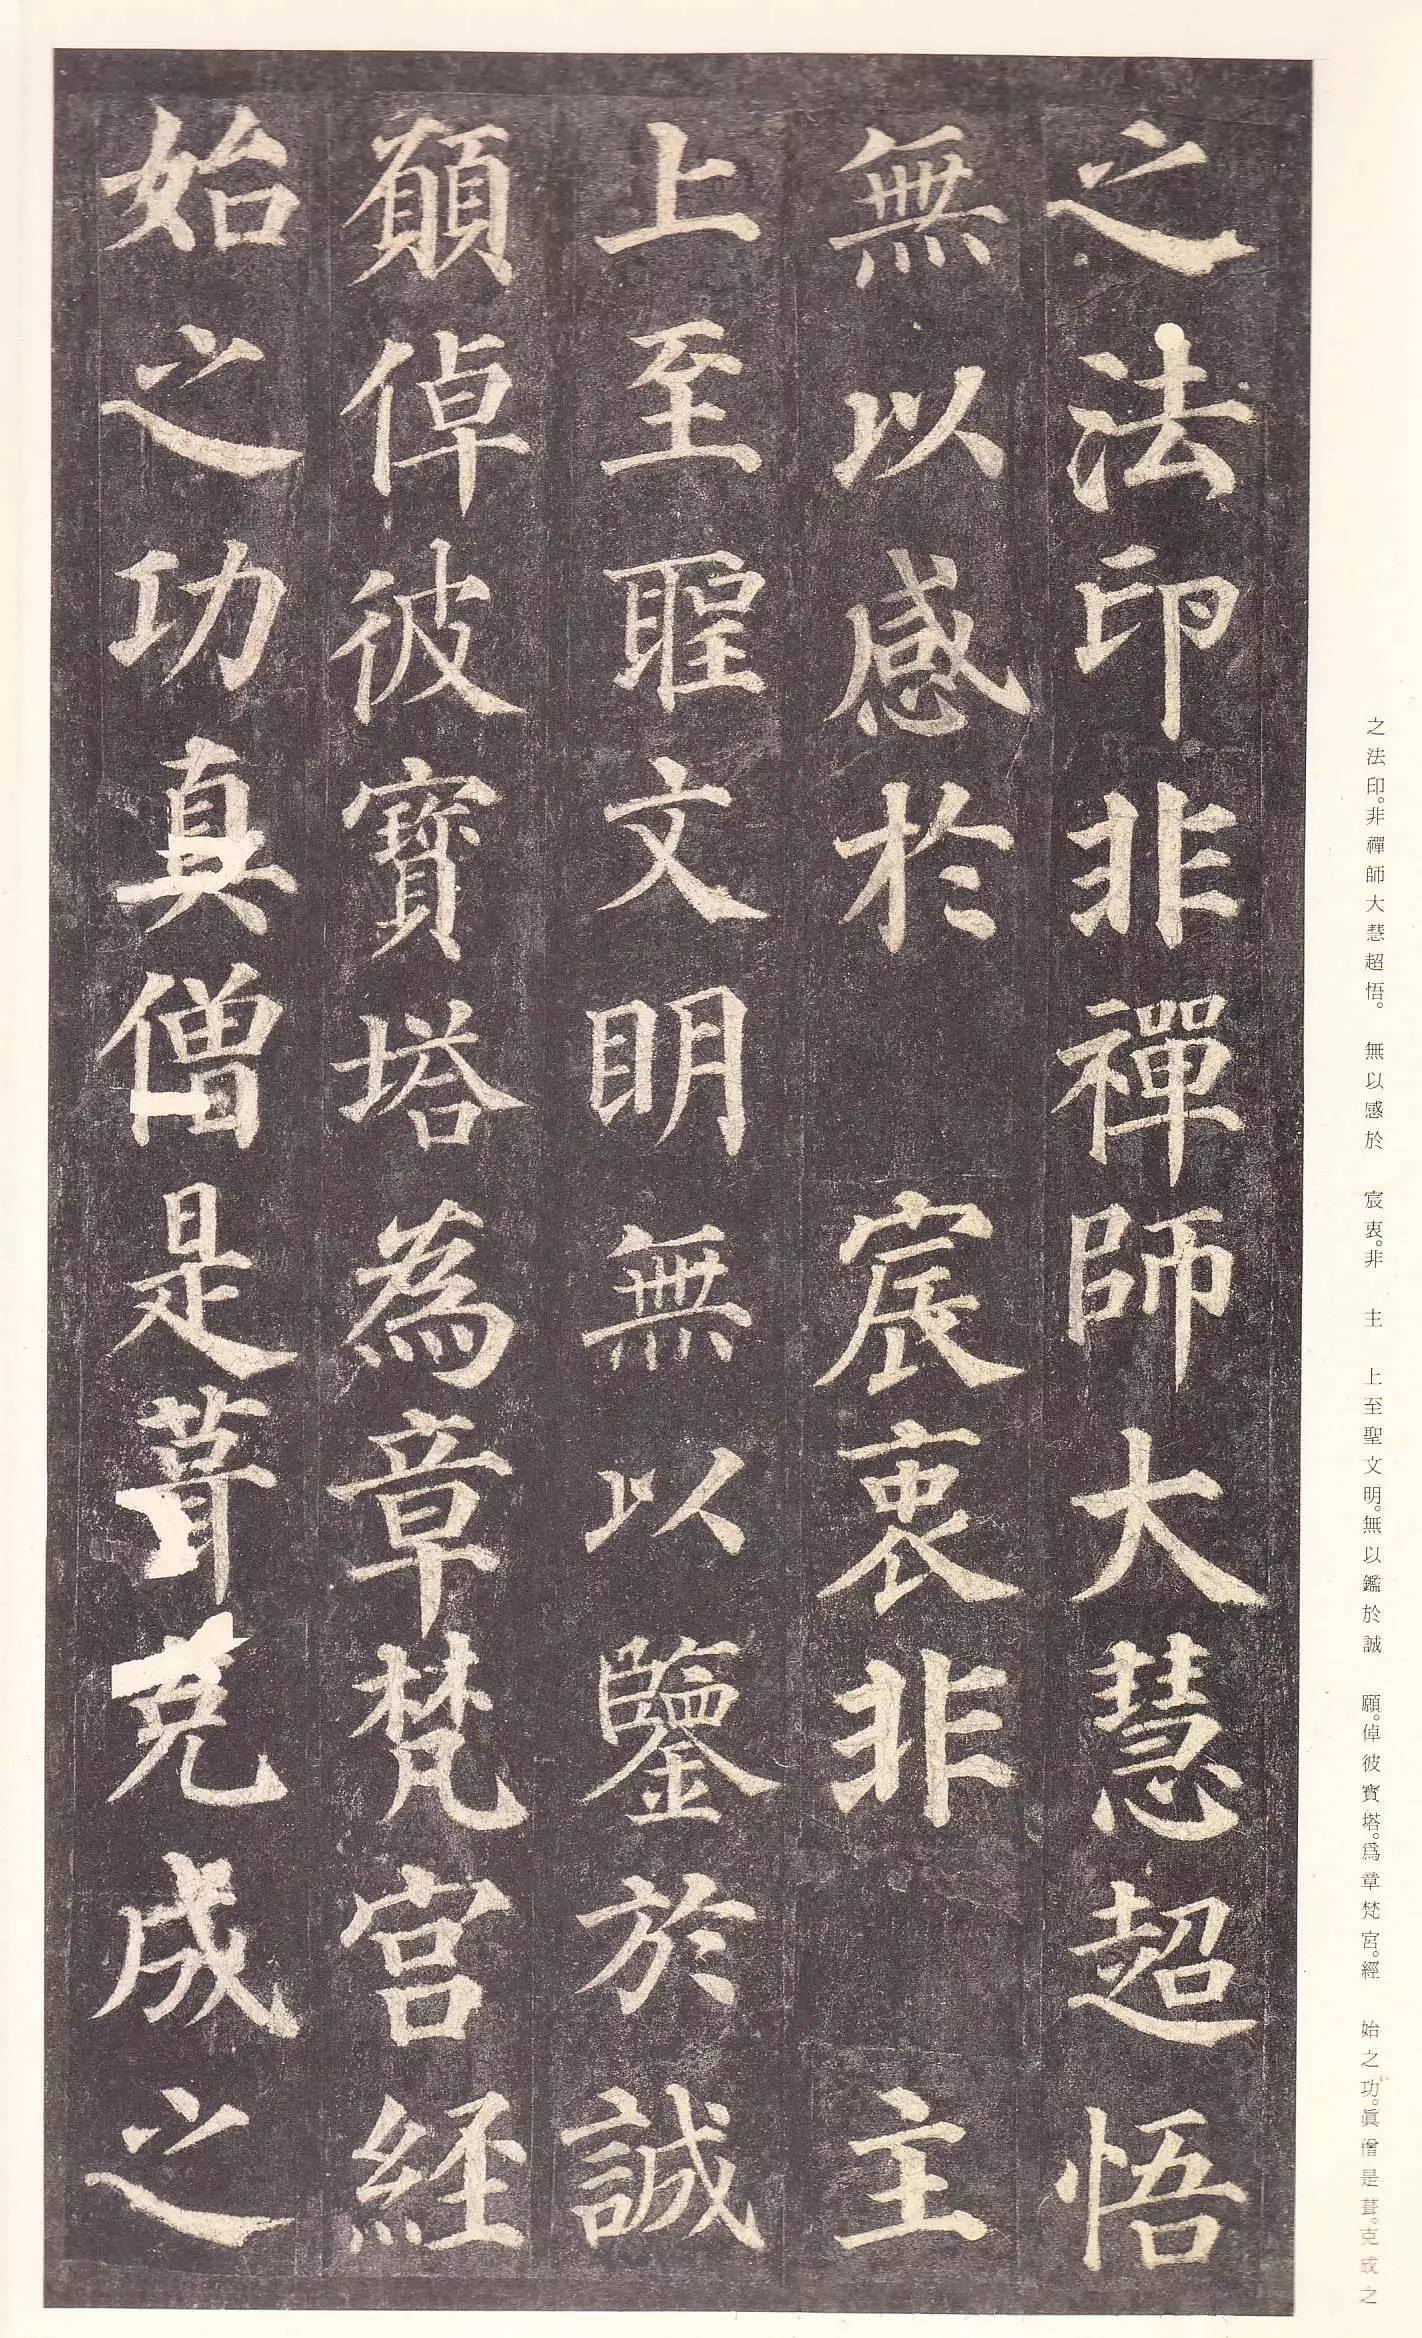 之法印非禪師大慧超悟
無以感於 宸衷非 主
上至聖文明無以鑒於誠
願倬彼寶塔為章梵宮經
始之功真僧是葺克成之
之法印。非禪師大慧超悟。 無以感於 宸衷。非 主 上至聖文明。無以鑑於誠 願。倬彼寶塔。爲章梵宮。經 始之功。眞僧是葺。克成之